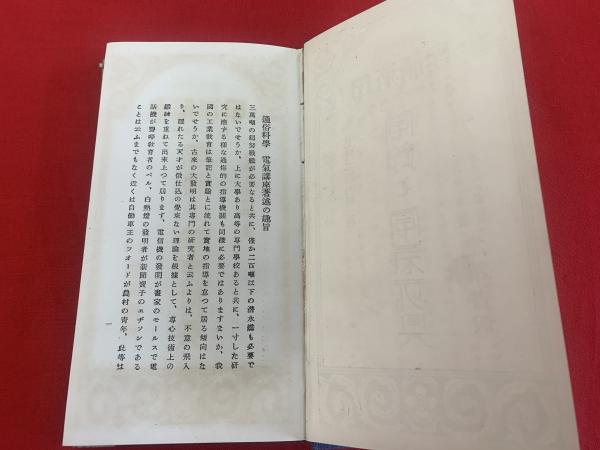 通俗科學 電氣講座著述の趣旨
三萬噸の超弩級艦が必要なると共に、僅か二百噸以下の潜水艦も必要で
はないでせうか、上に大學あり高等の専門學校あると共に、一寸した研
究に便する樣な通俗的の指導機關も同樣に必要ではありますまいか、我
國の工業教育は筆記と實驗とに流れて實地の指導を怠つて居る傾向はな
いでせうか、古來の大發明は其専門の研究者と云ふよりは、不意の飛入
り、隠れたる天才が俄仕込の覺束ない理論を根據として、専心技術上の
鍛錬を重ねて出來上つて居ります、電信機の發明が畫家のモールスで電
話機が聾啞教育者のベル、白熱燈の發明者が新聞賣子のエヂソンである
ことは云ふまでもなく近くは自動車王のフオードが農村の青年、此等は